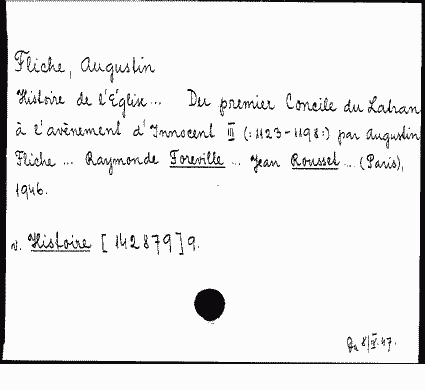 Fliche, Augustin
Histoire de l'Église... Du premier Concile du Latran
à l'avènement d'Innocent III (:1123-1198:) par Augustin
Fliche ... Raymonde Foreville ... Jean Rousset ... (Paris),
1946.
v. Histoire [142879] 9.
8/IV.47.